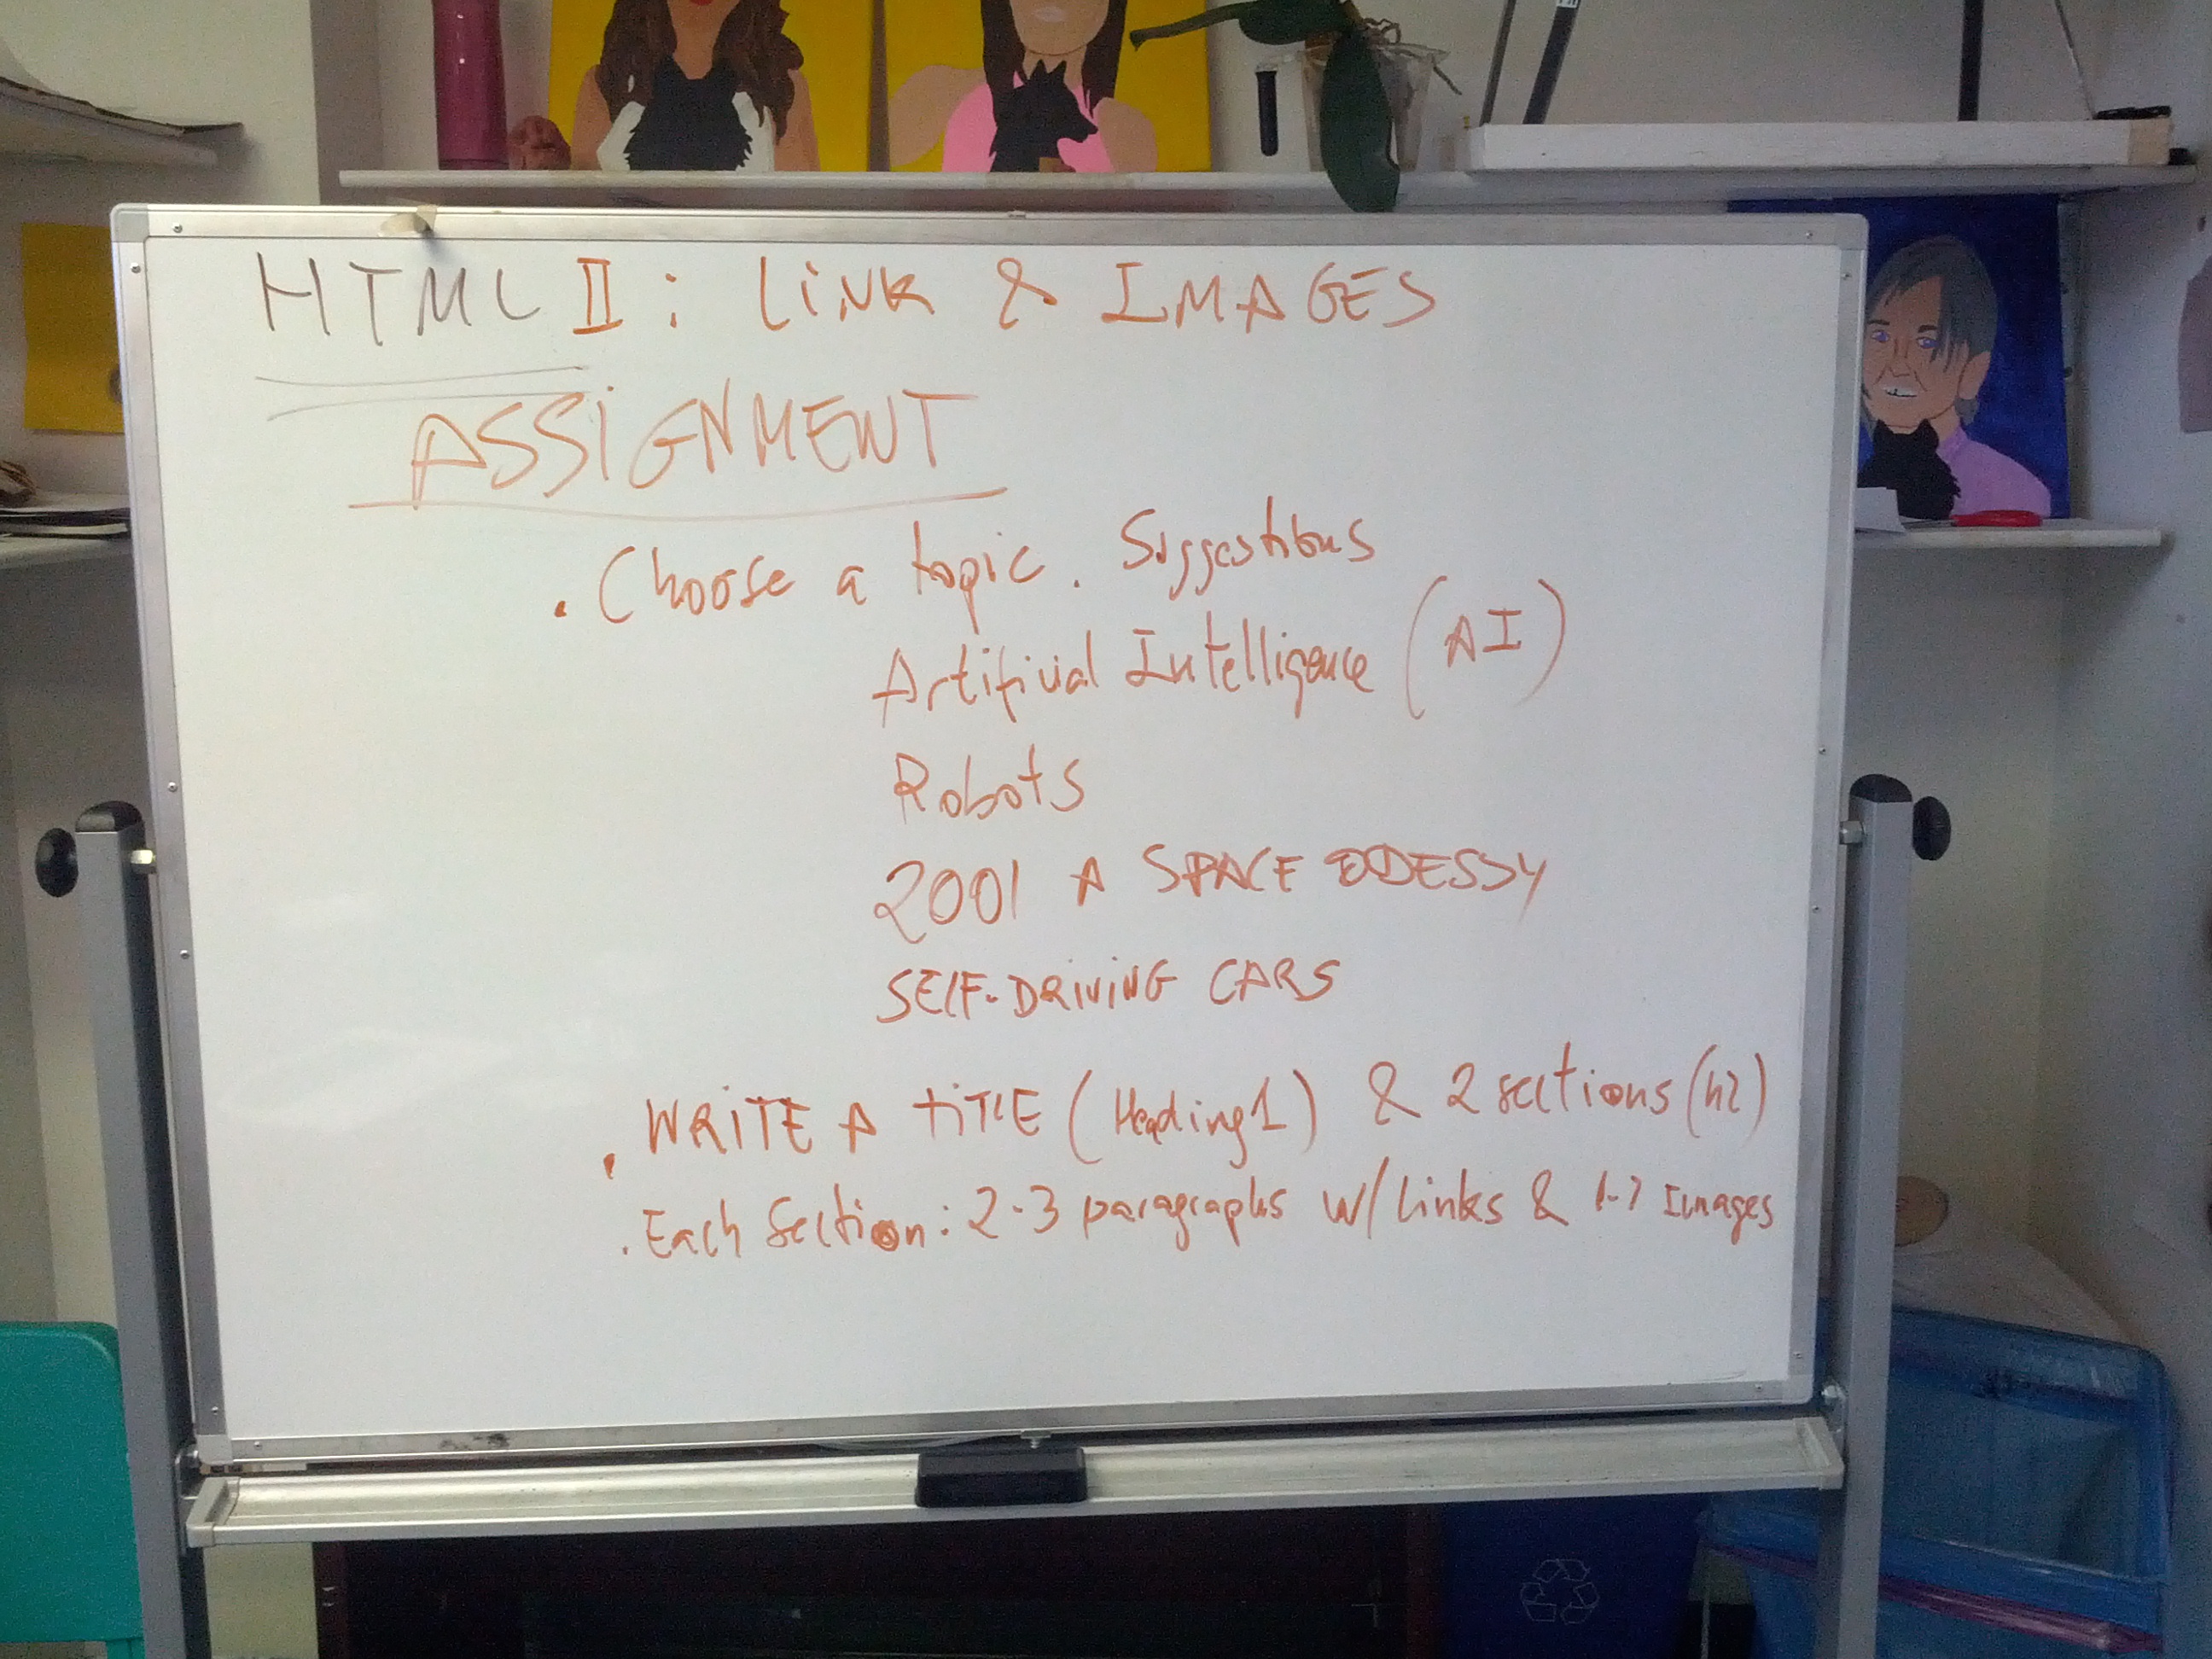 HTML II: LiNK & IMAGES
ASSiGNMENT
. Choose a topic. Suggestions
Artificial Intelligence (AI)
Robots
2001 A SPACE ODESSY
SELF-DRIVING CARS
. WRITE A TITLE (Heading 1) & 2 sections (h2)
. Each Section: 2-3 paragraphs w/ links & 1-2 Images